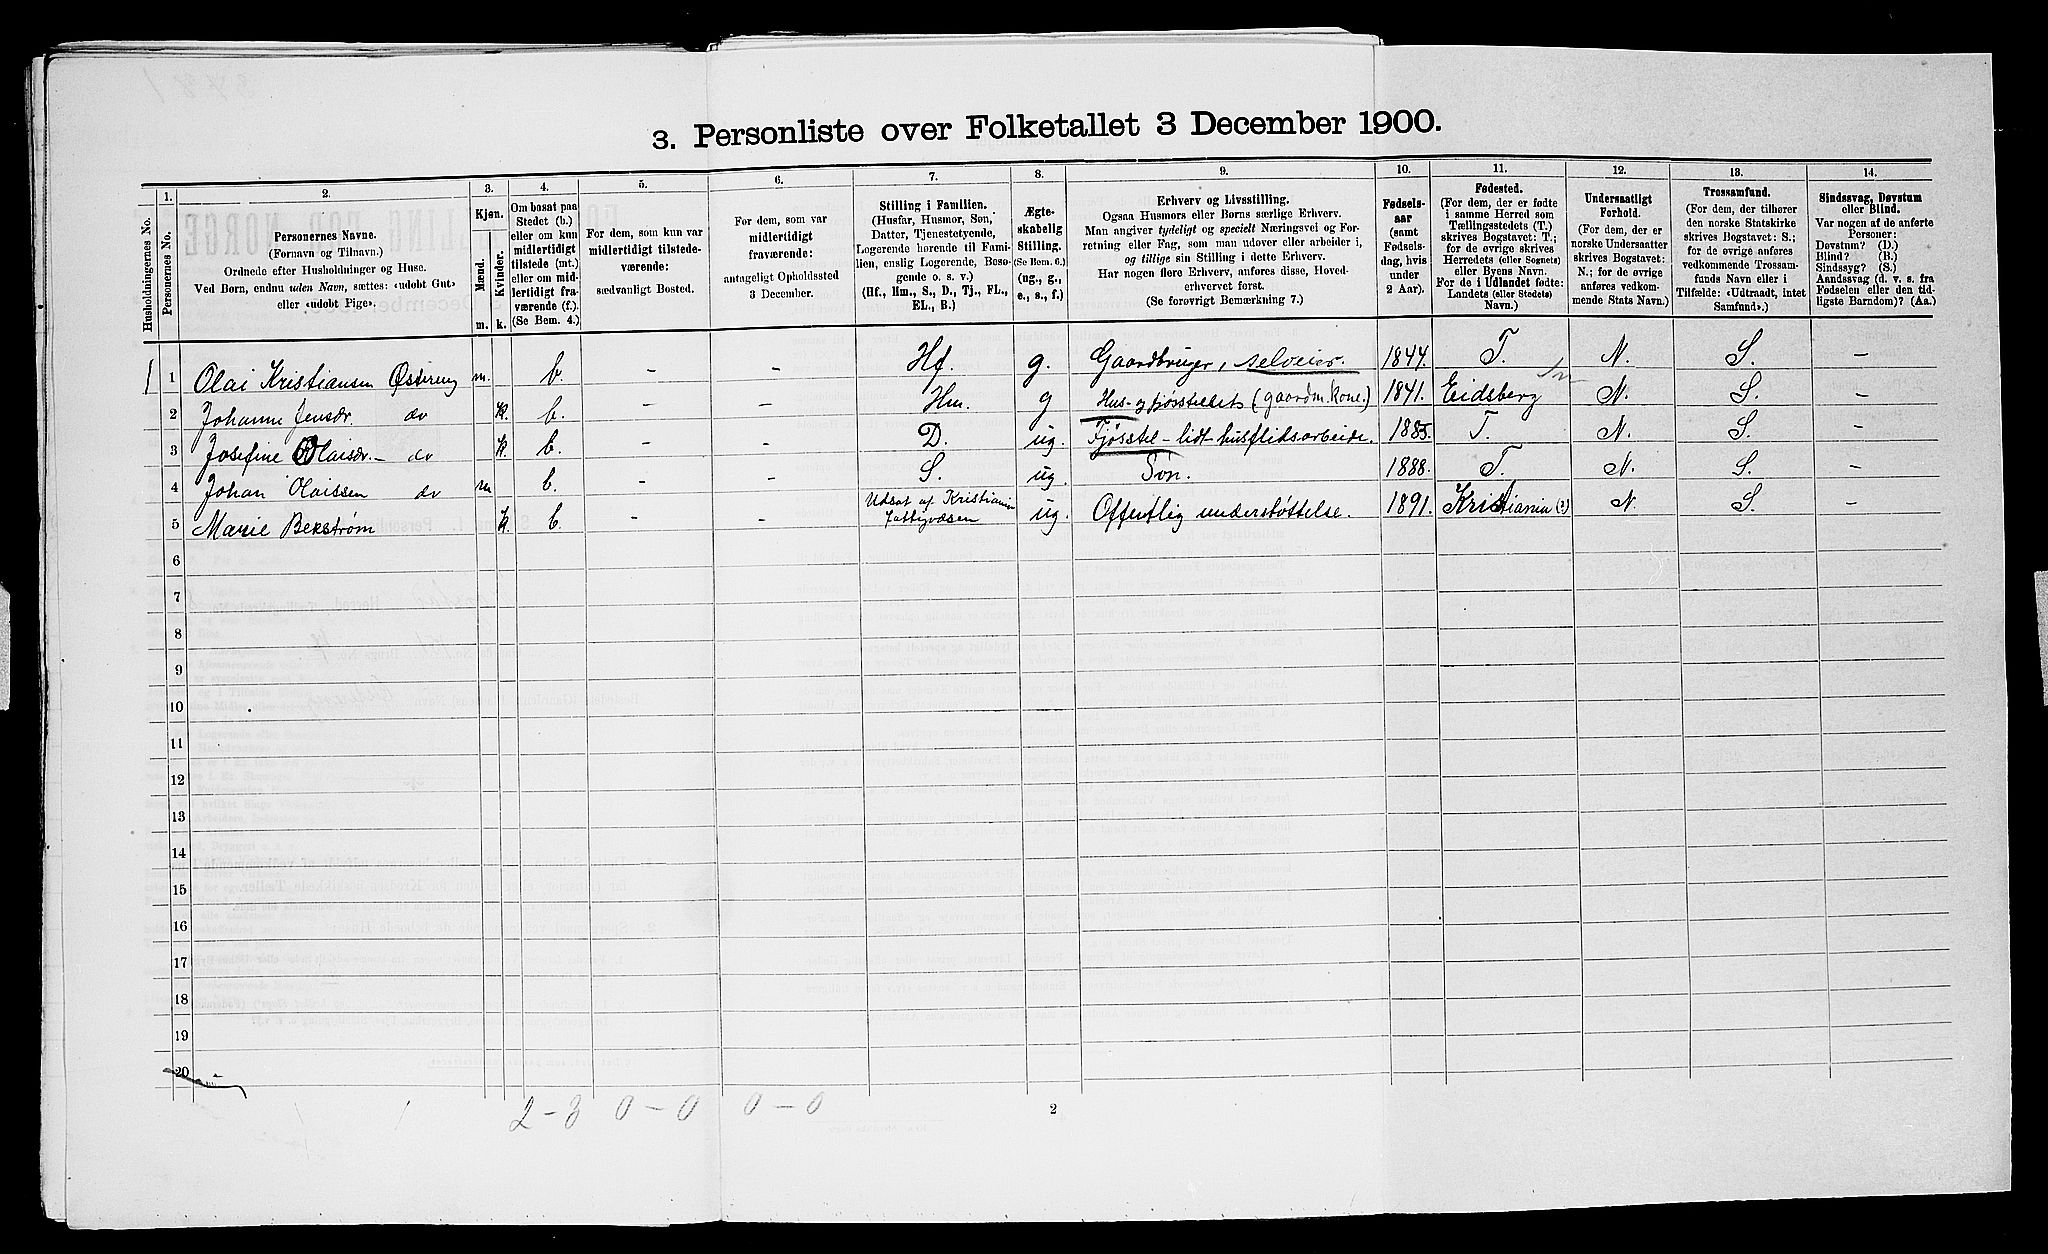 3. Personliste over Folketallet 3 December 1900.
Husholdningernes No.
1. Personernes No.
2. Personernes Navne.
(Fornavn og Tilnavn.)
Ordnede efter Husholdninger og Huse.
Ved Børn, endnu uden Navn, sættes: «udøbt Gut»
eller «udøbt Pige».
3. Kjøn.
Mænd. m.
Kvinder. k.
4. Om bosat paa
Stedet (b.)
eller om kun
midlertidigt
tilstede (mt.)
eller om mid-
lertidigt fra-
værende (f.).
(Se Bem. 4.)
5. For dem, som kun var
midlertidigt tilstede-
værende:
sædvanligt Bosted.
6. For dem, som var
midlertidigt
fraværende:
antageligt Opholdssted
3 December.
7. Stilling i Familien.
(Husfar, Husmor, Søn,
Datter, Tjenestetyende,
Logerende hørende til Fami-
lien, enslig Logerende, Besø-
gende o. s. v.)
(Hf., Hm., S., D., Tj., FL.,
EL., B.)
8. Ægte-
skabelig
Stilling.
(Se Bem. 6.)
(ug., g.,
e., s., f.)
9. Erhverv og Livsstilling.
Ogsaa Husmors eller Børns særlige Erhverv.
Man angiver tydeligt og specielt Næringsvei og For-
retning eller Fag, som man udøver eller arbeider i,
og tillige sin Stilling i dette Erhverv.
Har nogen flere Erhverv, anføres disse, Hoved-
erhvervet først.
(Se forøvrigt Bemærkning 7.)
10. Fødsels-
aar
(samt
Fødsels-
dag, hvis
under
2 Aar).
11. Fødested.
(For dem, der er fødte
i samme Herred som
Tællingsstedets (T.)
skrives Bogstavet: T.;
for de øvrige skrives
Herredets (eller Sognets)
eller Byens Navn.
For de i Udlandet fødte:
Landets (eller Stedets)
Navn.)
12. Undersaatligt
Forhold.
(For dem, der er
norske Undersaatter
skrives Bogstavet:
N.; for de øvrige
anføres vedkom-
mende Stats Navn.)
13. Trossamfund.
(For dem, der tilhører
den norske Statskirke
skrives Bogstavet: S.;
for de øvrige anføres
vedkommende Trossam-
funds Navn eller i
Tilfælde: «Udtraadt, intet
Samfund».)
14. Sindssvag, Døvstum
eller Blind.
Var nogen af de anførte
Personer:
Døvstum? (D.)
Blind? (B.)
Sindssyg? (S.)
Aandssvag (d. v. s. fra
Fødselen eller den tid-
ligste Barndom)? (Aa.)
1 1 Olai Kristiansen Østereng m. b. - - Hf. g. Gaardbruger, selveier. 1844. T. N. S. -
2 Johanne Jensdr. do k. b. - - Hm. g Hus- og fjøsstellets (gaardm. kone.) 1841. Eidsberg N. S. -
3 Josefine Olaisdr. - do k. b. - - D. ug. Fjøsstel - lidt husflidsarbeide. 1885. T. N. S. -
4 Johan Olaissen do m b. - - S. ug. Søn. 1888. T. N. S. -
5 Marie Bekstrøm k. b. - - Udsat af Kristiania Fattigvæsen ug. Offentlig understøttelse. 1891. Kristiania (?) N. S. -
6
7
8
9
10
11
12
13
14
15
16
17
18
19
20
2 - 3 0 - 0 0 - 0
2